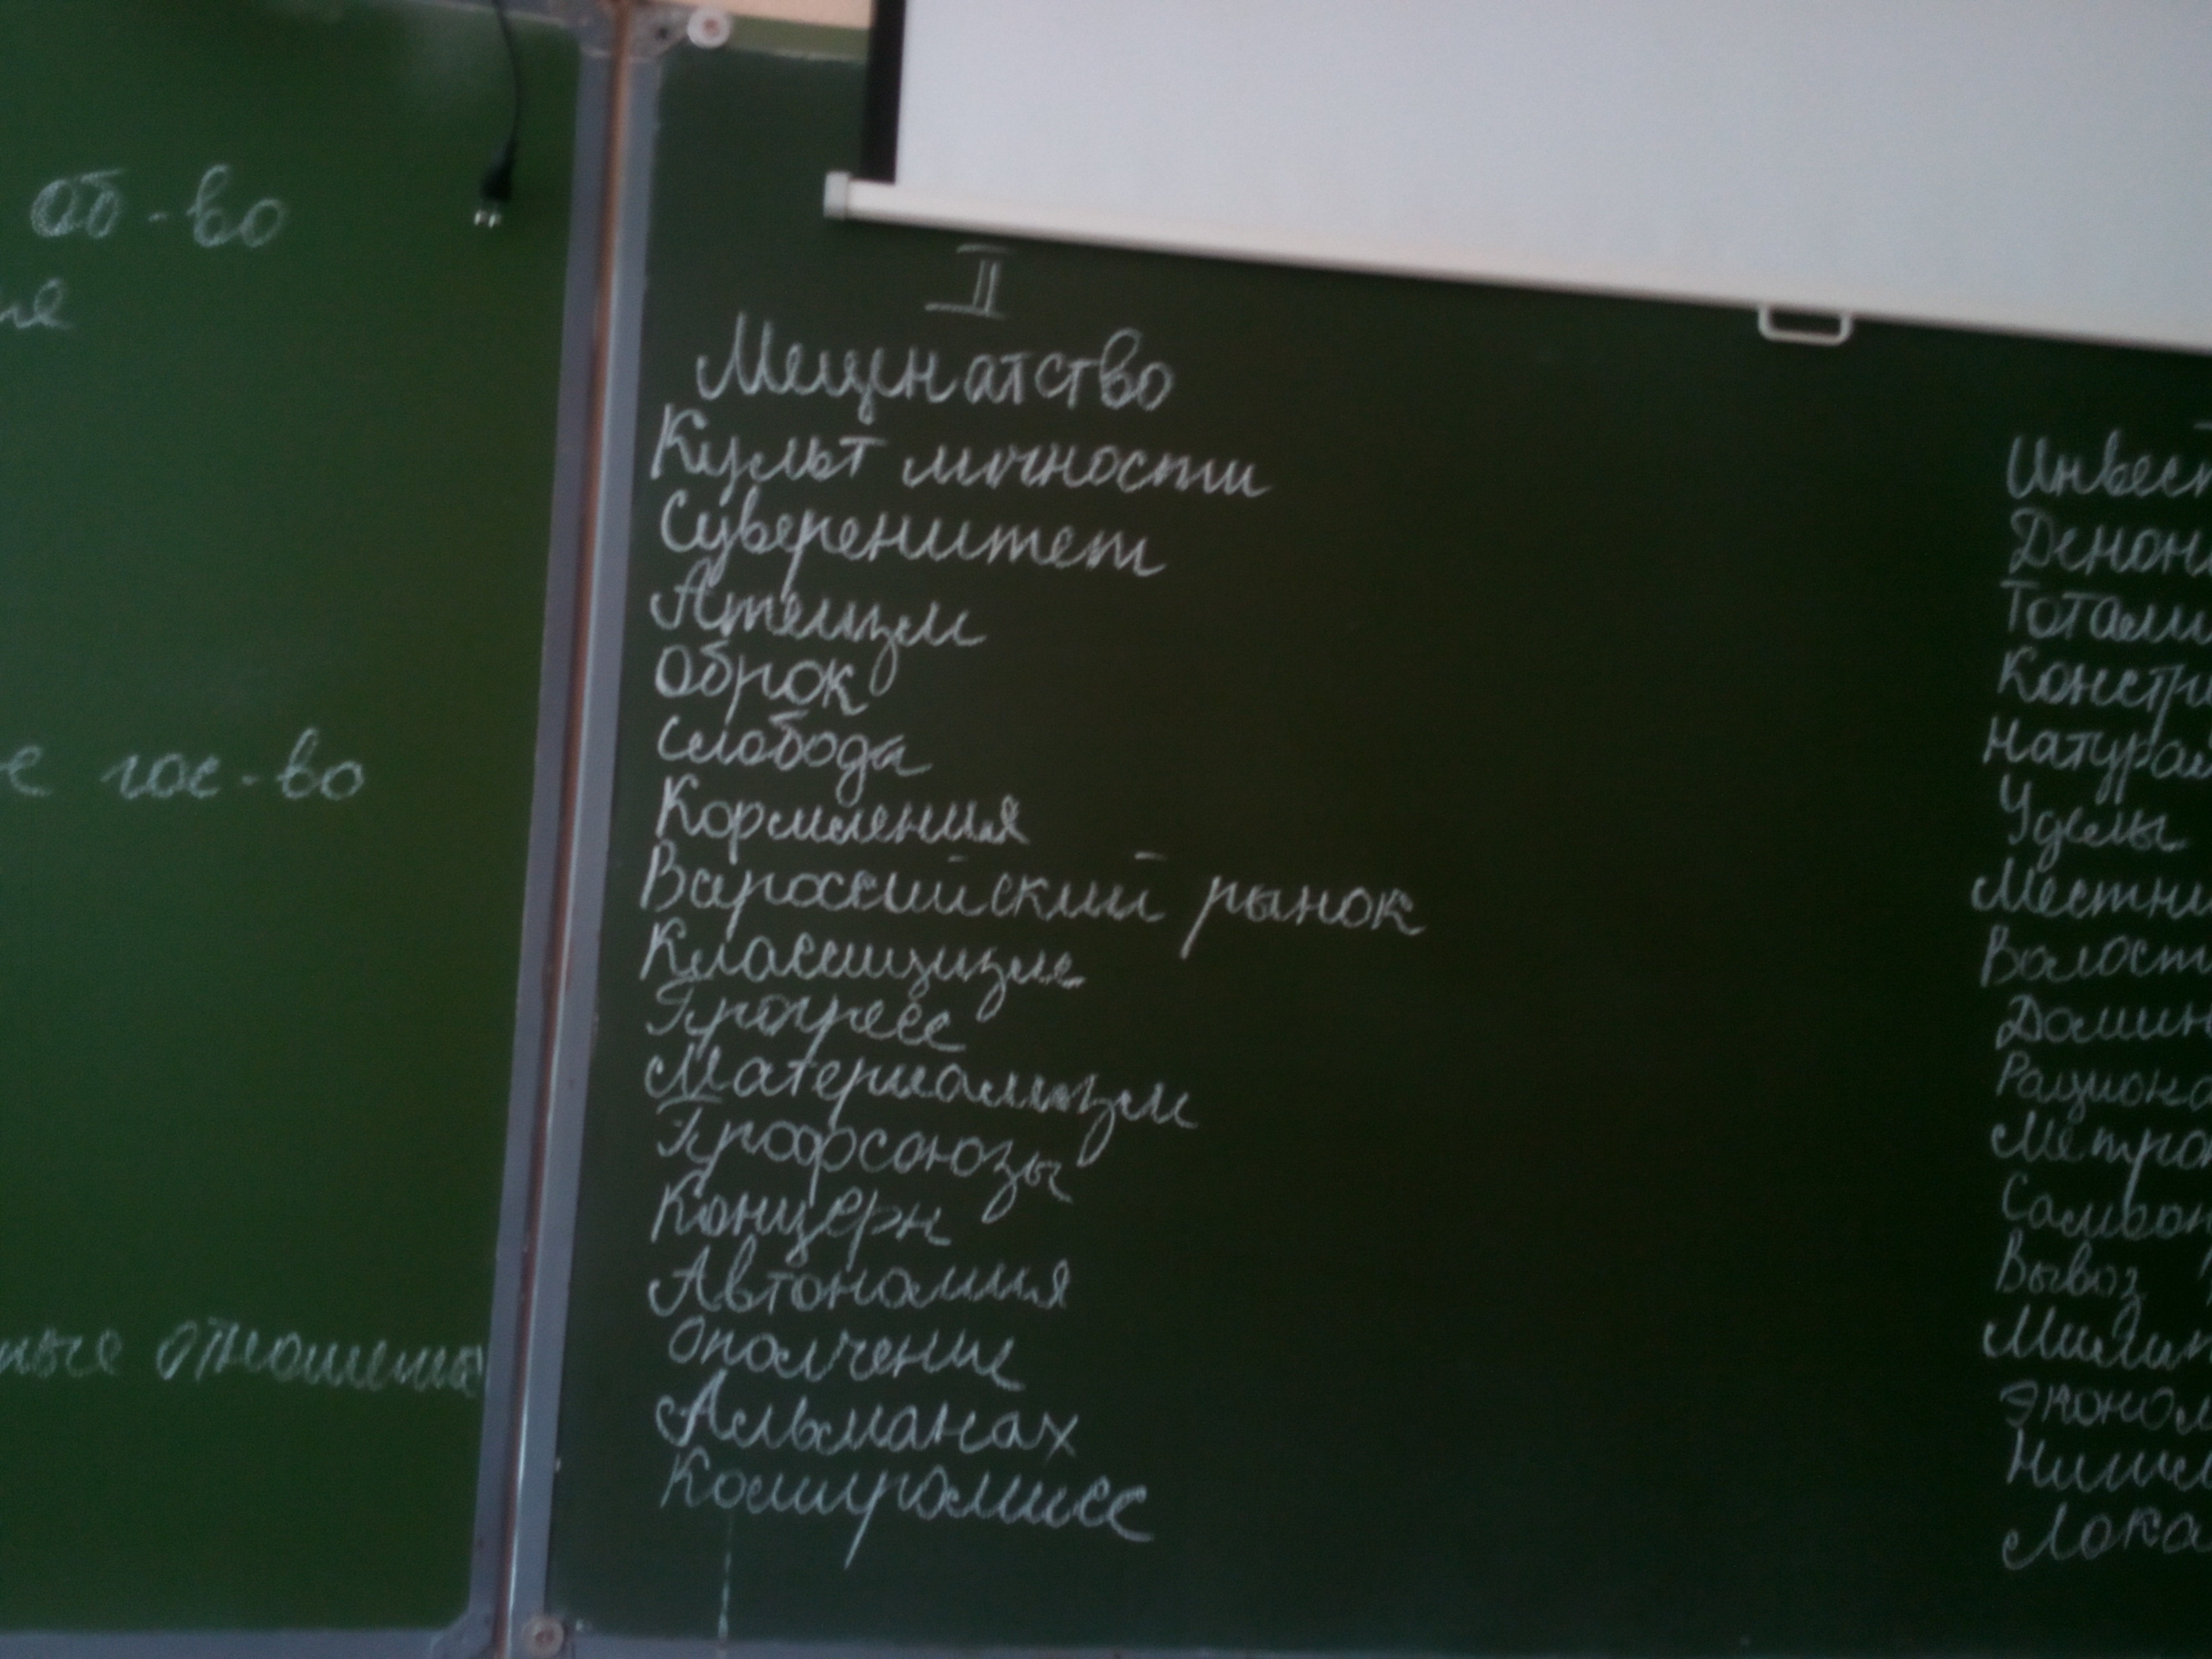 об-во
гос-во
отношения
II
Меценатство
Культ личности
Суверенитет
Атеизм
Оброк
Слобода
Кормления
Всероссийский рынок
Классицизм
Прогресс
Материализм
Профсоюзы
Концерн
Автономия
Ополчение
Альманах
Компромисс
Инвест
Денон
Тотали
Констр
Натурал
Уделы
Местни
Волост
Домин
Рациона
Метро
Вывоз
Милит
Эконом
Лока